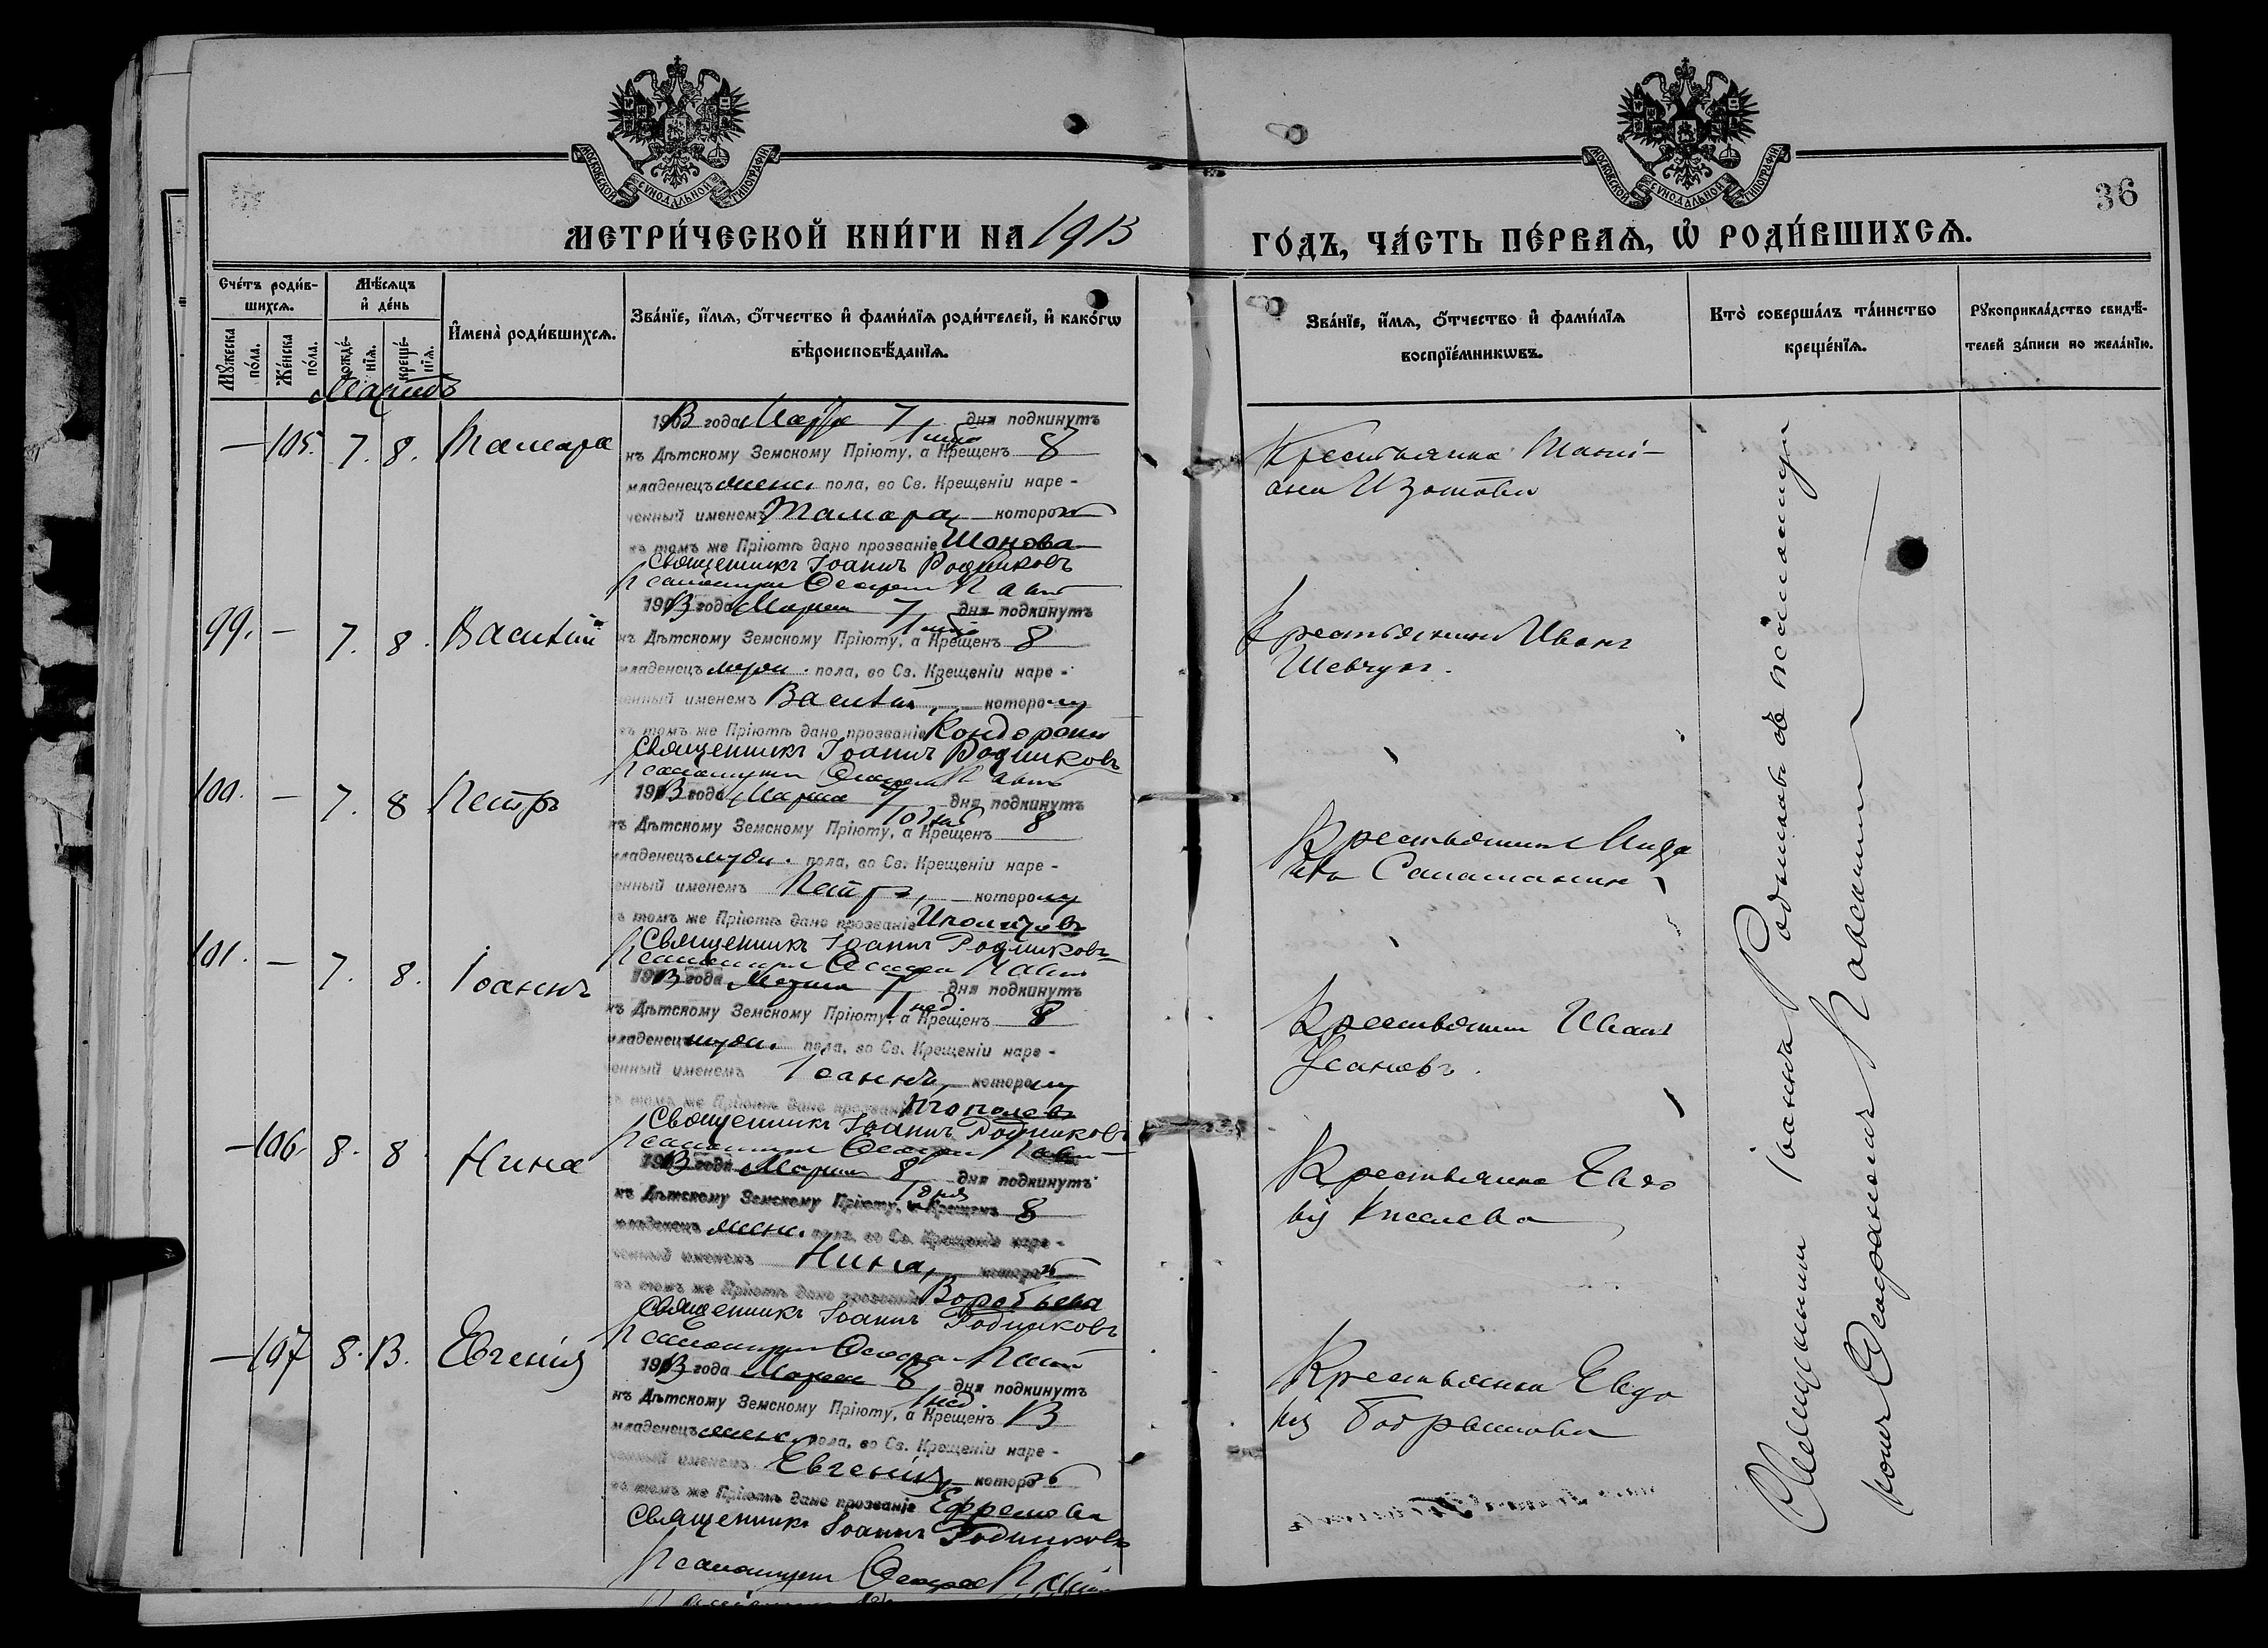 МОСКОВСКОЙ СѴНОДАЛЬНОЙ ТИПОГРАФІИ
МОСКОВСКОЙ СѴНОДАЛЬНОЙ ТИПОГРАФІИ
36
МЕТРИ́ЧЕСКОЙ КНИ́ГИ НА 1913
ГО́ДЪ, ЧА́СТЬ ПЕ́РВАѦ, Ѽ РОДИ́ВШИХСѦ.
Сче́тъ роди́в-
шихсѧ.
Мꙋжеска по́ла.
Же́нска по́ла.
Мѣ́сѧцъ
и҆ де́нь
рожде́-
нїѧ.
креще́-
нїѧ.
И҆мена̀ роди́вшихсѧ.
Зва́нїе, и҆́мѧ, ѻ҆́тчество и҆ фами́лїѧ роди́телей, и҆ како́гѡ
вѣроисповѣ́данїѧ.
Зва́нїе, и҆́мѧ, ѻ҆́тчество и҆ фами́лїѧ
воспрїе́мникѡвъ.
Кто̀ соверша́лъ та́инство
креще́нїѧ.
Рꙋкоприкла́дство свидѣ́-
телей за́писи по жела́нїю.
Мартъ
— 105. 7. 8. Тамара
1913 года Марта 7 дня подкинутъ
къ Дѣтскому Земскому Пріюту, а Крещенъ 8
младенецъ женс. пола, во Св. Крещеніи наре-
ченный именемъ Тамара, которой
въ томъ же Пріютѣ дано прозваніе
Священникъ Іоаннъ Родниковъ
Псаломщикъ
Крестьянка Тати-
ана Изотова
99. — 7. 8. Василій
1913 года Марта 7 дня подкинутъ
къ Дѣтскому Земскому Пріюту, а Крещенъ 8
младенецъ муж. пола, во Св. Крещеніи наре-
ченный именемъ Василій, которому
въ томъ же Пріютѣ дано прозваніе
Священникъ Іоаннъ Родниковъ
Псаломщикъ
Крестьянинъ Иванъ
Шевчукъ.
100. — 7. 8 Петръ
1913 года Марта 7 дня подкинутъ
къ Дѣтскому Земскому Пріюту, а Крещенъ 8
младенецъ муж. пола, во Св. Крещеніи наре-
ченный именемъ Петръ, которому
въ томъ же Пріютѣ дано прозваніе
Священникъ Іоаннъ Родниковъ
Псаломщикъ
Крестьянинъ
101. — 7. 8. Іоаннъ
1913 года Марта 7 дня подкинутъ
1 нед.
къ Дѣтскому Земскому Пріюту, а Крещенъ 8
младенецъ муж. пола, во Св. Крещеніи наре-
ченный именемъ Іоаннъ, которому
въ томъ же Пріютѣ дано прозваніе
Священникъ Іоаннъ Родниковъ
Псаломщикъ
Крестьянинъ Иванъ
Усановъ.
— 106. 8. 8. Нина
1913 года Марта 8 дня подкинутъ
къ Дѣтскому Земскому Пріюту, а Крещенъ 8
младенецъ женс. пола, во Св. Крещеніи наре-
ченный именемъ Нина, которой
въ томъ же Пріютѣ дано прозваніе Воробьева
Священникъ Іоаннъ Родниковъ
Псаломщикъ
Крестьянка Евдо-
кія Киселева
— 107 8. 13. Евгенія
1913 года Марта 8 дня подкинутъ
1 нед.
къ Дѣтскому Земскому Пріюту, а Крещенъ 13
младенецъ женс. пола, во Св. Крещеніи наре-
ченный именемъ Евгенія, которой
въ томъ же Пріютѣ дано прозваніе Ефремова
Священникъ Іоаннъ Родниковъ
Псаломщикъ
Крестьянка Евдо-
кія
Священникъ Іоаннъ Родниковъ съ псаломщи-
комъ